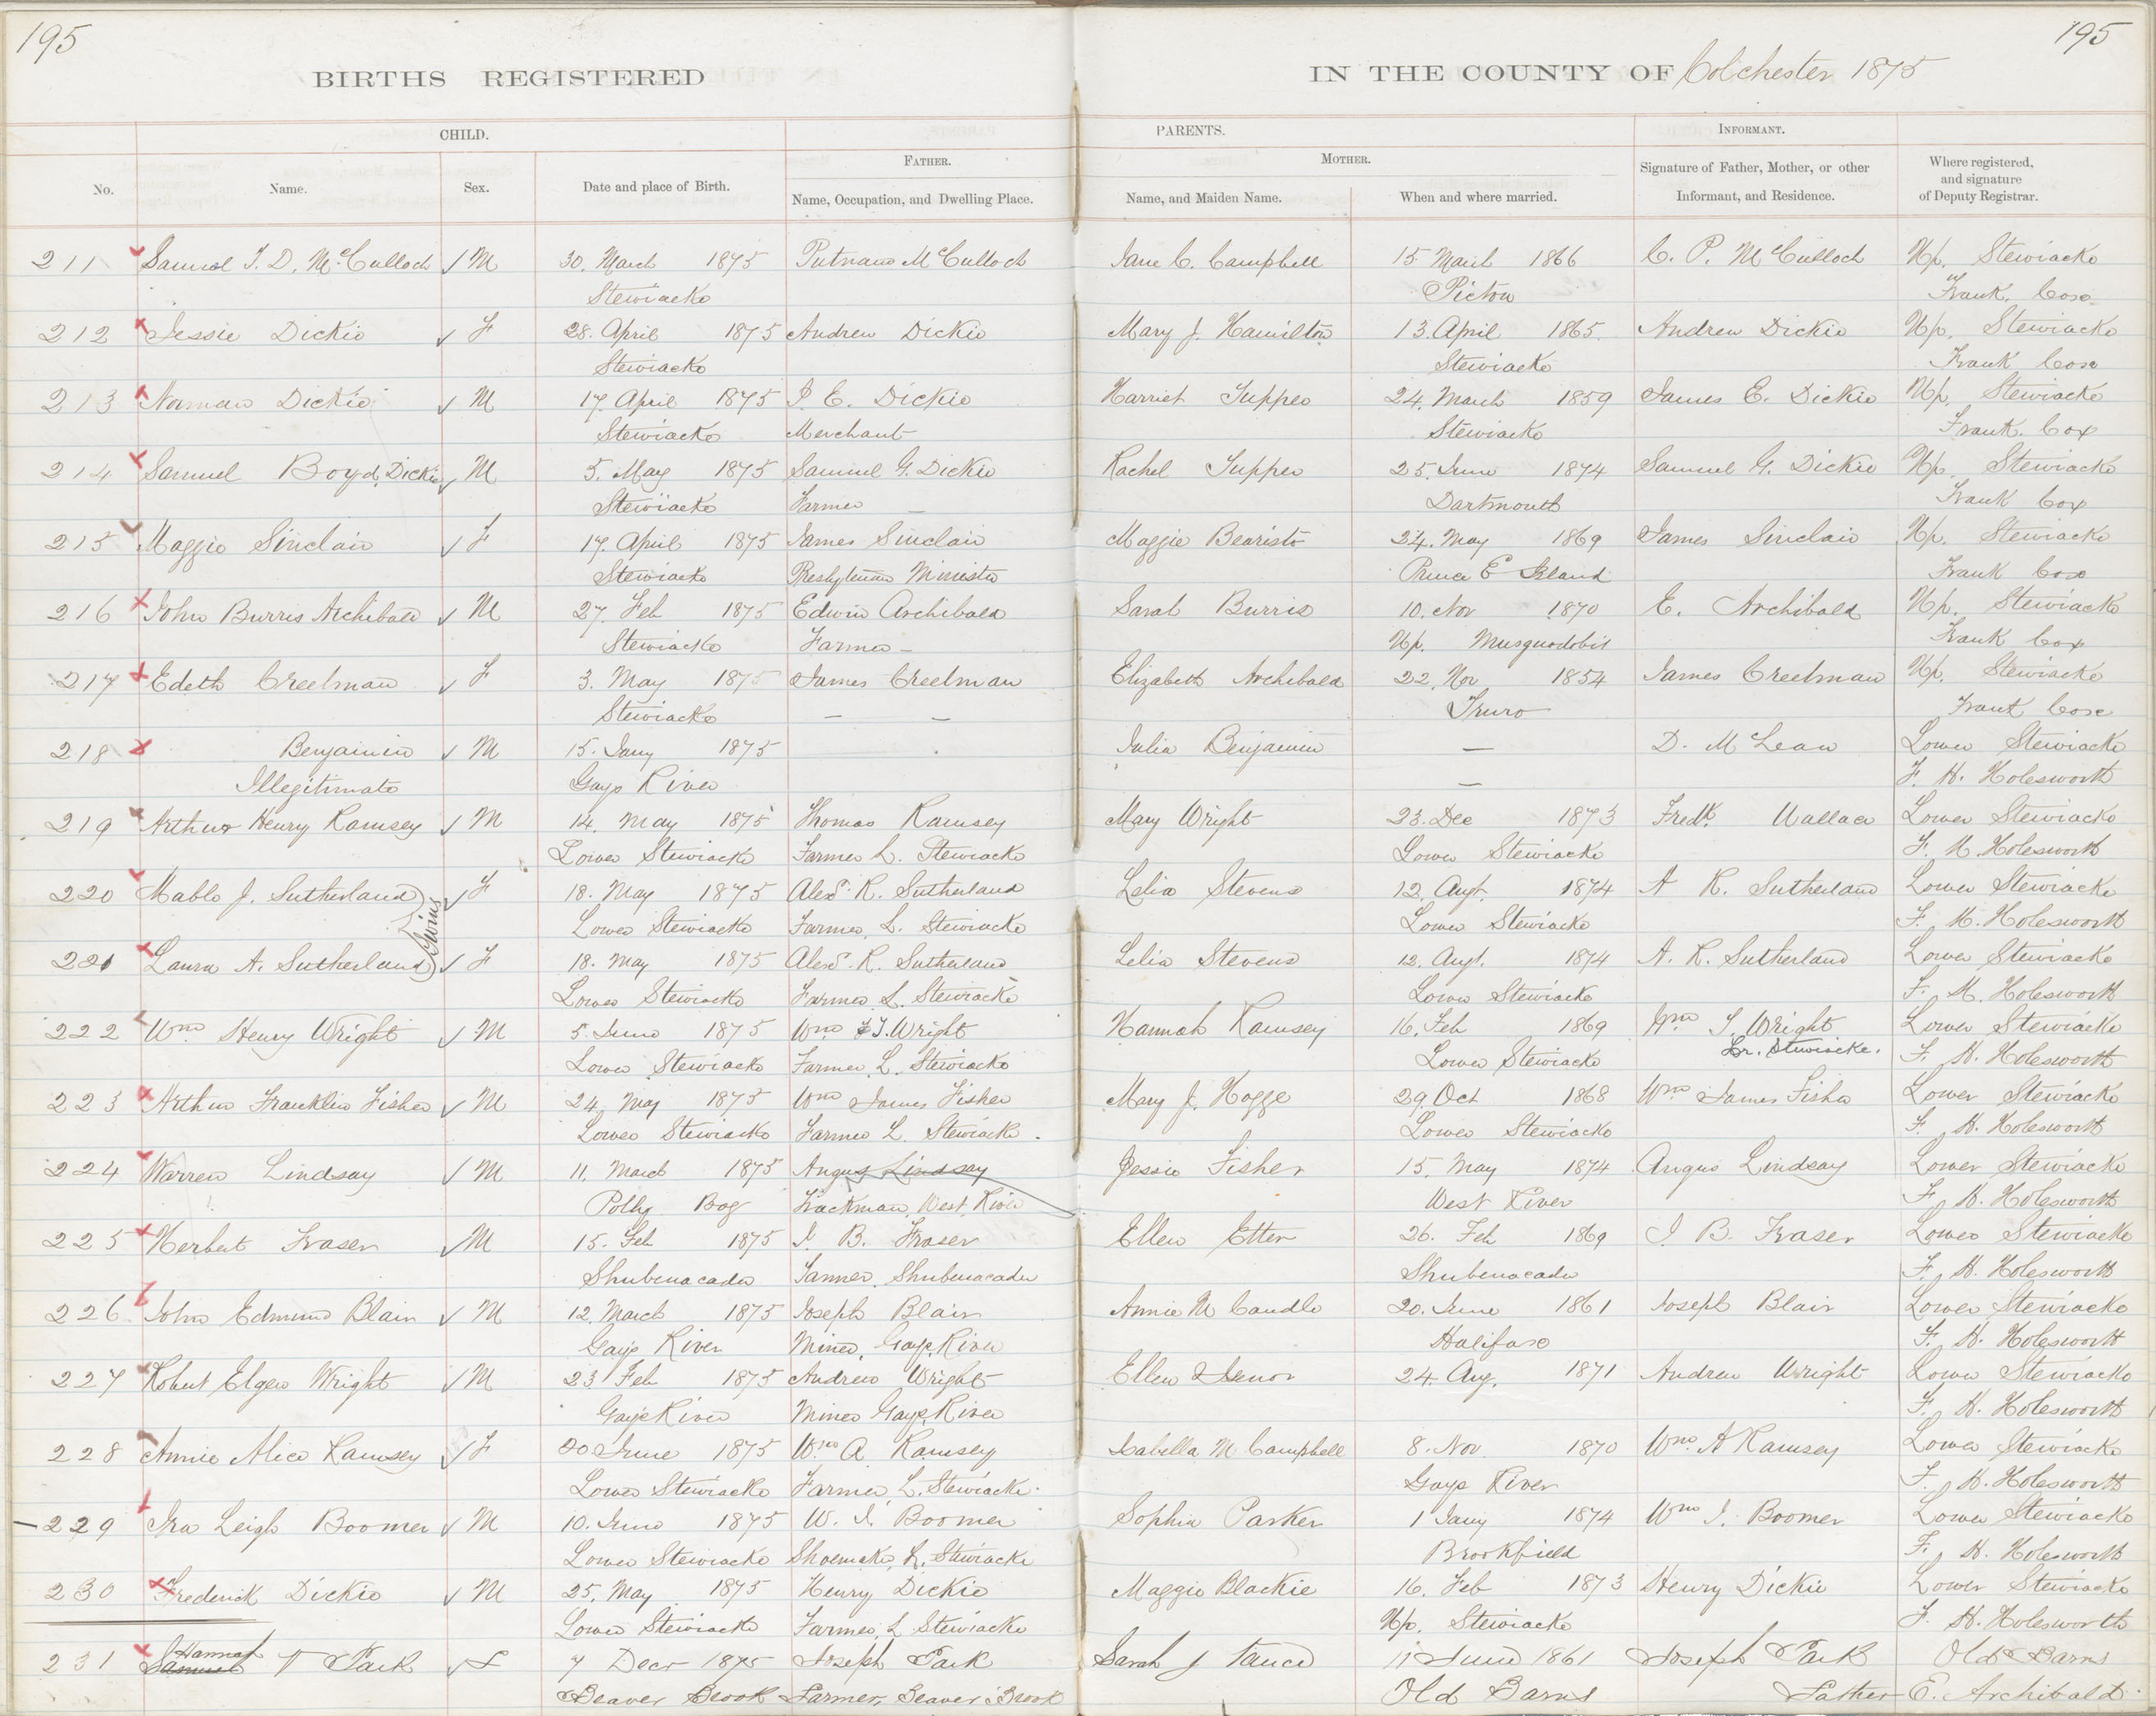 195
195
BIRTHS REGISTERED
IN THE COUNTY OF Colchester 1875
CHILD.
PARENTS.
INFORMANT.
FATHER.
MOTHER.
No.
Name.
Sex.
Date and place of Birth.
Name, Occupation, and Dwelling Place.
Name, and Maiden Name.
When and where married.
Signature of Father, Mother, or other Informant, and Residence.
Where registered, and signature of Deputy Registrar.
211 Samuel J. D. McCulloch M 30. March 1875 Putnam McCulloch Jane C. Campbell 15 March 1866 C. P. McCulloch Up. Stewiacke
Stewiacke Pictou Frank. Cox
212 Jessie Dickie F 28. April 1875 Andrew Dickie Mary J. Hamilton 13. April 1865. Andrew Dickie Up. Stewiacke
Stewiacke Stewiacke Frank Cox
213 Norman Dickie M 17. April 1875 J. E. Dickie Harriet Tupper 24. March 1859 James E. Dickie Up. Stewiacke
Stewiacke Merchant Stewiacke Frank. Cox
214 Samuel Boyd, Dickie M 5. May 1875 Samuel G. Dickie Rachel Tupper 25. June 1874 Samuel G. Dickie Up. Stewiacke
Stewiacke Farmer — Dartmouth Frank Cox
215 Maggie Sinclair F 17. April 1875 James Sinclair Maggie Bearisto 24. May 1869 James Sinclair Up. Stewiacke
Stewiacke Presbyterian Minister Prince E Island Frank Cox
216 John Burris Archibald M 27. Feb 1875 Edwin Archibald Sarah Burris 10. Nov 1870 E. Archibald Up. Stewiacke
Stewiacke Farmer — Up. Musquodobit Frank Cox
217 Edeth Creelman F 3. May 1875 James Creelman Elizabeth Archibald 22. Nov 1854 James Creelman Up. Stewiacke
Stewiacke — — Truro Frank Cox
218 Benjamin M 15. Jany 1875 Julia Benjamin — D. McLean Lower Stewiacke
Illegitimate Gays River — F. H. Holesworth
219 Arthur Henry Ramsey M 14. May 1875 Thomas Ramsey Mary Wright 23. Dec 1873 Fredk. Wallace Lower Stewiacke
Lower Stewiacke Farmer L. Stewiacke Lower Stewiacke F. H. Holesworth
220 Mable J. Sutherland F 18. May 1875 Alexr. R. Sutherland Lelia Stevens 12. Augt. 1874 A R. Sutherland Lower Stewiacke
Twins
Lower Stewiacke Farmer, L. Stewiacke Lower Stewiacke F. H. Holesworth
221 Laura A. Sutherland F 18. May 1875 Alexr. R. Sutherland Lelia Stevens 12. Augt. 1874 A. R. Sutherland Lower Stewiacke
Lower Stewiacke Farmer L. Stewiacke Lower Stewiacke F. H. Holesworth
222 Wm. Henry Wright M 5. June 1875 Wm. J. Wright Hannah Ramsey 16. Feb 1869 Wm J. Wright Lower Stewiacke
Lower Stewiacke Farmer. L. Stewiacke Lower Stewiacke Lr. Stewiacke. F. H. Holesworth
223 Arthur Franklin Fisher M 24. May 1875 Wm James Fisher Mary J. Hogge 29. Oct 1868 Wm James Fisher Lower Stewiacke
Lower Stewiacke Farmer L. Stewiacke. Lower Stewiacke F. H. Holesworth
224 Warren Lindsay M 11. March 1875 Angus Lindsay Jessie Fisher 15. May 1874 Angus Lindsay Lower Stewiacke
Polly Bog Trackman, West River West River F. H. Holesworth
225 Herbert Fraser M 15. Feb 1875 J. B. Fraser Ellen Etter 26. Feb 1869 J. B. Fraser Lower Stewiacke
Shubenacadie Tanner. Shubenacadie Shubenacadie F. H. Holesworth
226 John Edmund Blair M 12. March 1875 Joseph Blair Annie McCaudle 20. June 1861 Joseph Blair Lower Stewiacke
Gays River Miner, Gays River Halifax F. H. Holesworth
227 Robert Elgen Wright M 23 Feb 1875 Andrew Wright Ellen 24. Aug. 1871 Andrew Wright Lower Stewiacke
Gays River Miner Gays River F. H. Holesworth
228 Annie Alice Ramsey F 20 June 1875 Wm. A. Ramsey Isabella McCampbell 8. Nov 1870 Wm. A Ramsey Lower Stewiacke
Lower Stewiacke Farmer L. Stewiacke. Gays River F. H. Holesworth
229 Ira Leigh Boomer M 10. June 1875 W. J. Boomer Sophia Parker 1 Jany 1874 Wm J. Boomer Lower Stewiacke
Lower Stewiacke Shoemaker, L. Stewiacke Brookfield F. H. Holesworth
230 Frederick Dickie M 25. May 1875 Henry Dickie Maggie Blackie 16. Feb 1873 Henry Dickie Lower Stewiacke
Lower Stewiacke Farmer, L Stewiacke Up. Stewiacke F. H. Holesworth
Hannah
231 Samuel T Park F 7 Decr 1875 Joseph Park Sarah J 11 June 1861 Joseph Park Old Barns
Beaver Brook Farmer, Beaver Brook Old Barns Father E. Archibald